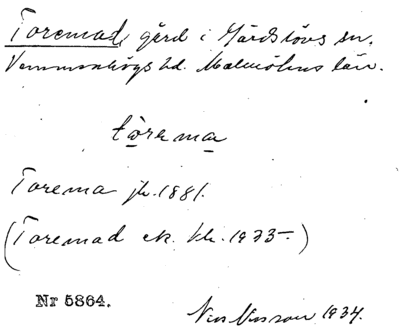 Toremad, gård i Gärdslövs sn.
Vemmenhögs hd. Malmöhus län.
tòrema
Torema jb. 1881.
(Toremad ek. kb. 1935.)
Nr 5864.
Nils Nilsson 1934.